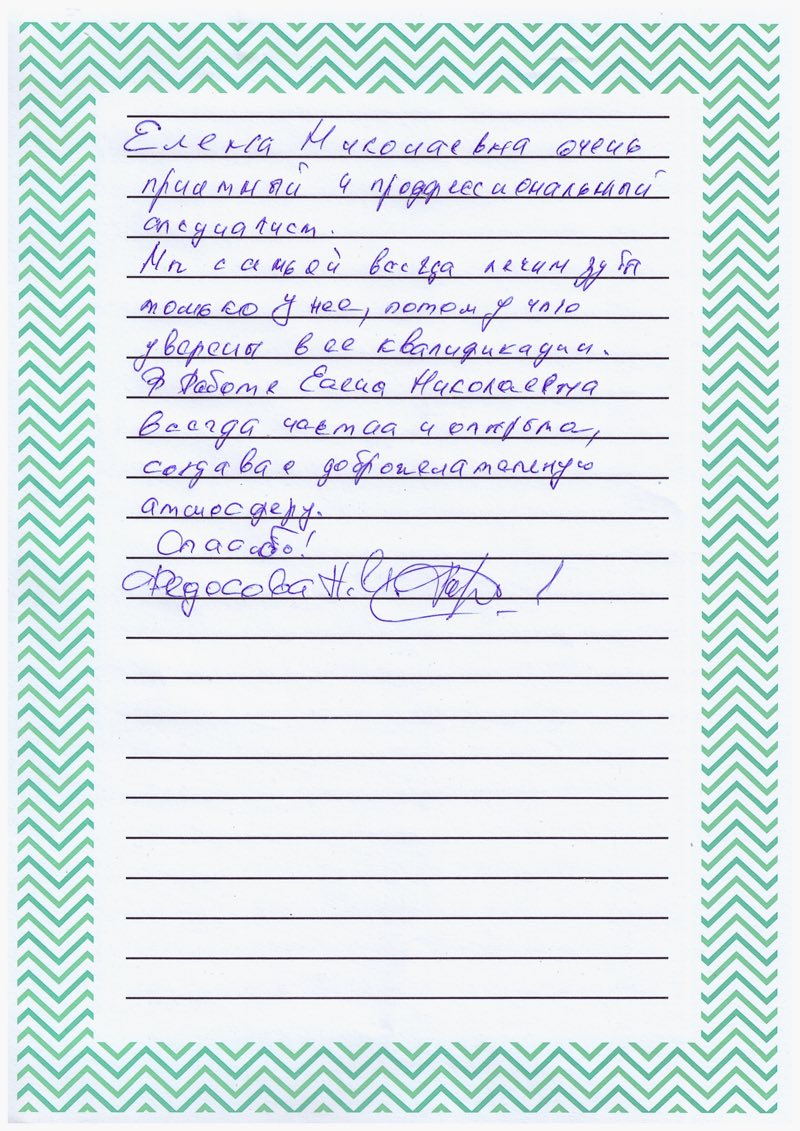 Елена Николаевна очень
приятный и проффессиональный
специалист.
Мы с семьей всегда лечим зубы
только у нее, потому что
уверены в ее квалификации.
В работе Елена Николаевна
всегда честна и открыта,
создавае доброжелательную
атмосферу.
Спасибо!
Федосова Н.